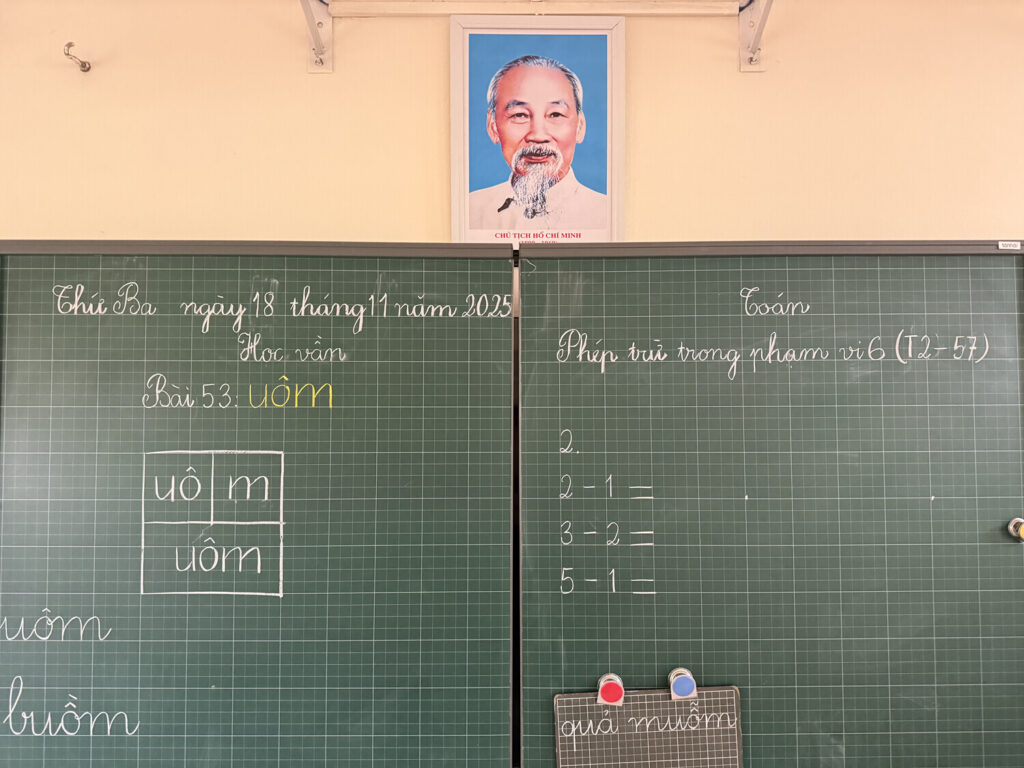 CHỦ TỊCH HỒ CHÍ MINH
Thứ Ba ngày 18 tháng 11 năm 2025
Học vần
Bài 53: uôm
uô m
uôm
uôm
buồm
Toán
Phép trừ trong phạm vi 6 (T2-57)
2.
2 - 1 =
3 - 2 =
5 - 1 =
quả muỗm